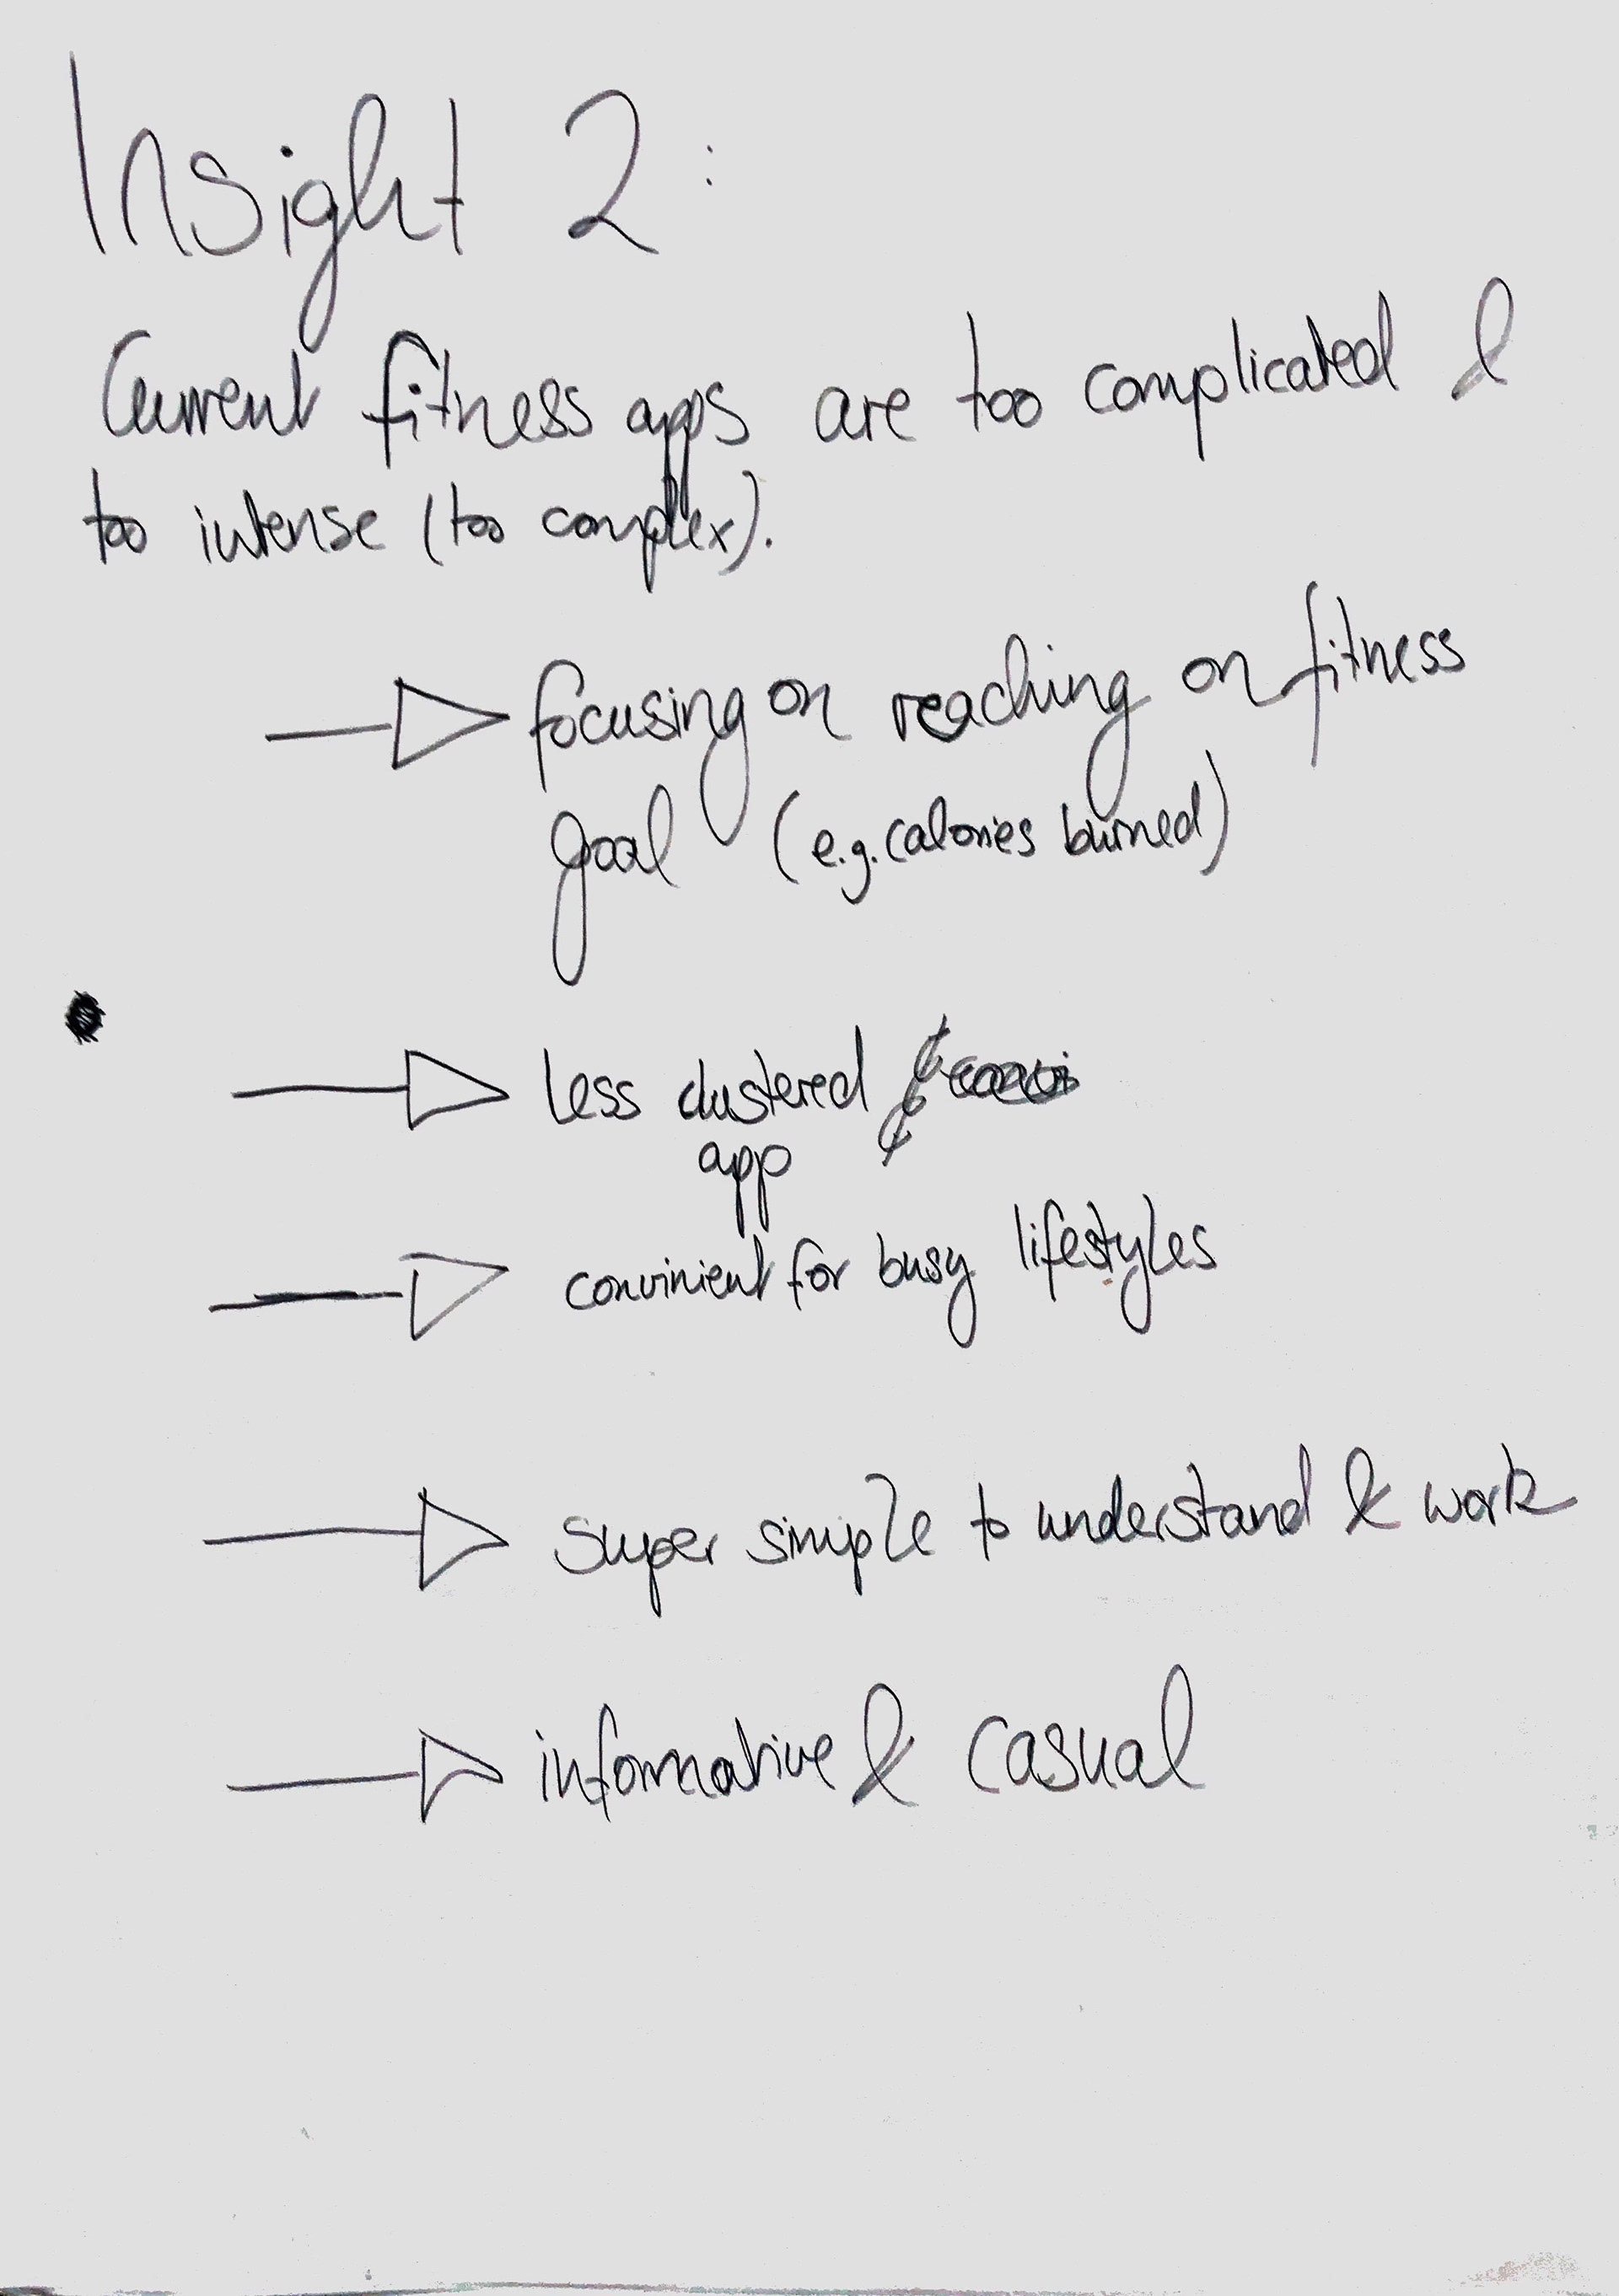 Insight 2:
Current fitness apps are too complicated &
too intense (too complex).
focusing on reaching on fitness
goal (e.g. calories burned)
less clustered
app
convinient for busy lifestyles
super simple to understand & work
informative & casual